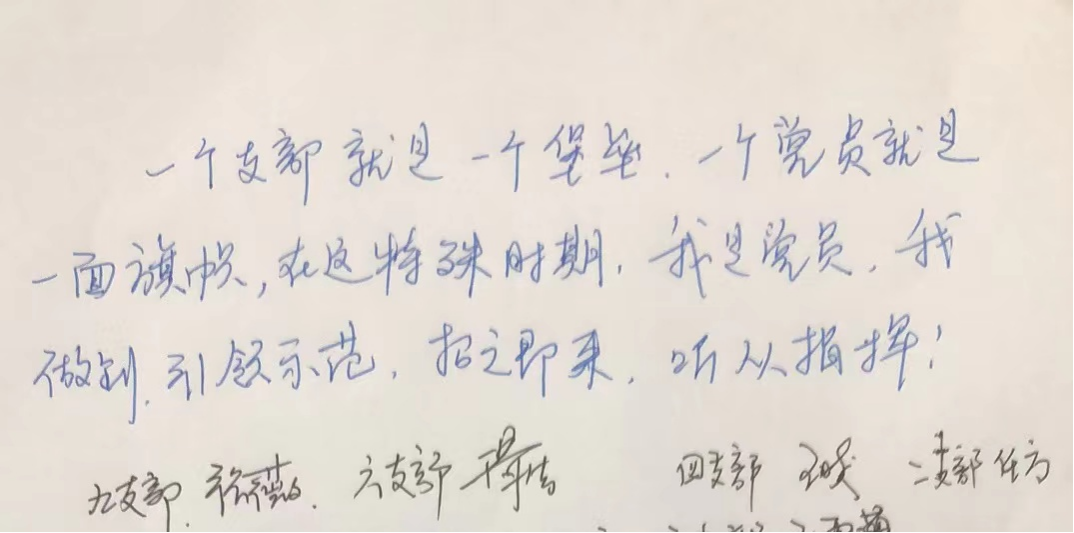 一个支部就是一个堡垒.一个党员就是
一面旗帜,在这特殊时期,我是党员,我
做到,引领示范,招之即来,听从指挥!
九支部.徐薇.六支部 四支部 二支部任方